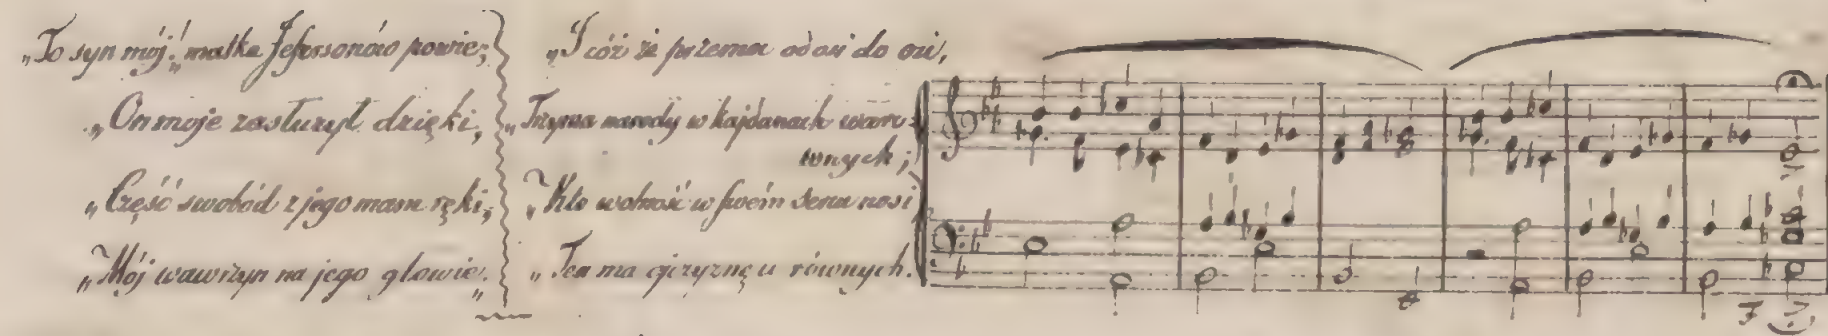 „To syn mój!„ matka Jefersonów powie;
„On moje zasłużył dzięki,
„Część swobód z jego mam ręki;
„Mój wawrzyn na jego głowie„
„I cóż że przemoc od osi do osi,
„Trzyma narody w kajdanach waro-
wnych;
„Kto wolność w swém sercu nosi
„Ten ma ojczyznę u równych.